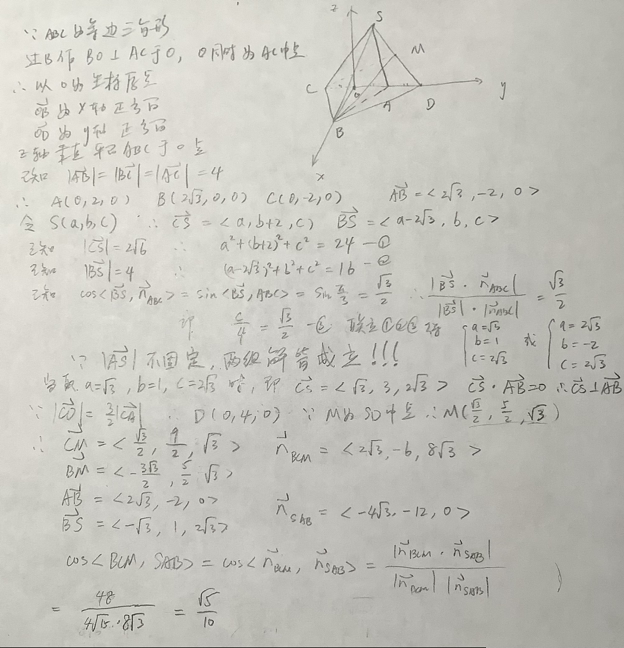 ∵ ABC为等边三角形
过B作 BO⊥AC于O, O同时为AC中点
∴ 以O为坐标原点
OB为x轴正方向
OD为y轴正方向
z轴垂直平面ABC于O点
已知 |AB|=|BC|=|AC|=4
∴ A(0,2,0) B(2√3,0,0) C(0,-2,0) AB=<2√3,-2,0>
令 S(a,b,c) ∴ CS=<a,b+2,c> BS=<a-2√3,b,c>
已知 |CS|=2√6 ∴ a²+(b+2)²+c²=24 —①
已知 |BS|=4 ∴ (a-2√3)²+b²+c²=16 —②
已知 cos<BS,n_ABC>=sin<BS,ABC>=sin π/3=√3/2 ∴ |BS·n_ABC|/|BS|·|n_ABC|=√3/2
即 c/4=√3/2 —③ 联立①②③得 {a=√3 b=1 c=2√3 或 {a=2√3 b=-2 c=2√3
∵ |AS|不固定, 两组解皆成立!!!
当取 a=√3, b=1, c=2√3 时, 即 CS=<√3,3,2√3> CS·AB=0 ∴CS⊥AB
∵ |CD|=3/2|CA| ∴ D(0,4,0) ∵ M为SD中点 ∴ M(√3/2, 5/2, √3)
∴ CM=<√3/2, 9/2, √3> n_BCM=<2√3,-6,8√3>
BM=<-3√3/2, 5/2, √3>
AB=<2√3,-2,0> n_SAB=<-4√3,-12,0>
BS=<-√3,1,2√3>
cos<BCM,SAB>=cos<n_BCM,n_SAB>=|n_BCM·n_SAB|/|n_BCM||n_SAB|
=48/4√15·8√3=√5/10
z
S
M
C
O
A
D
y
B
x